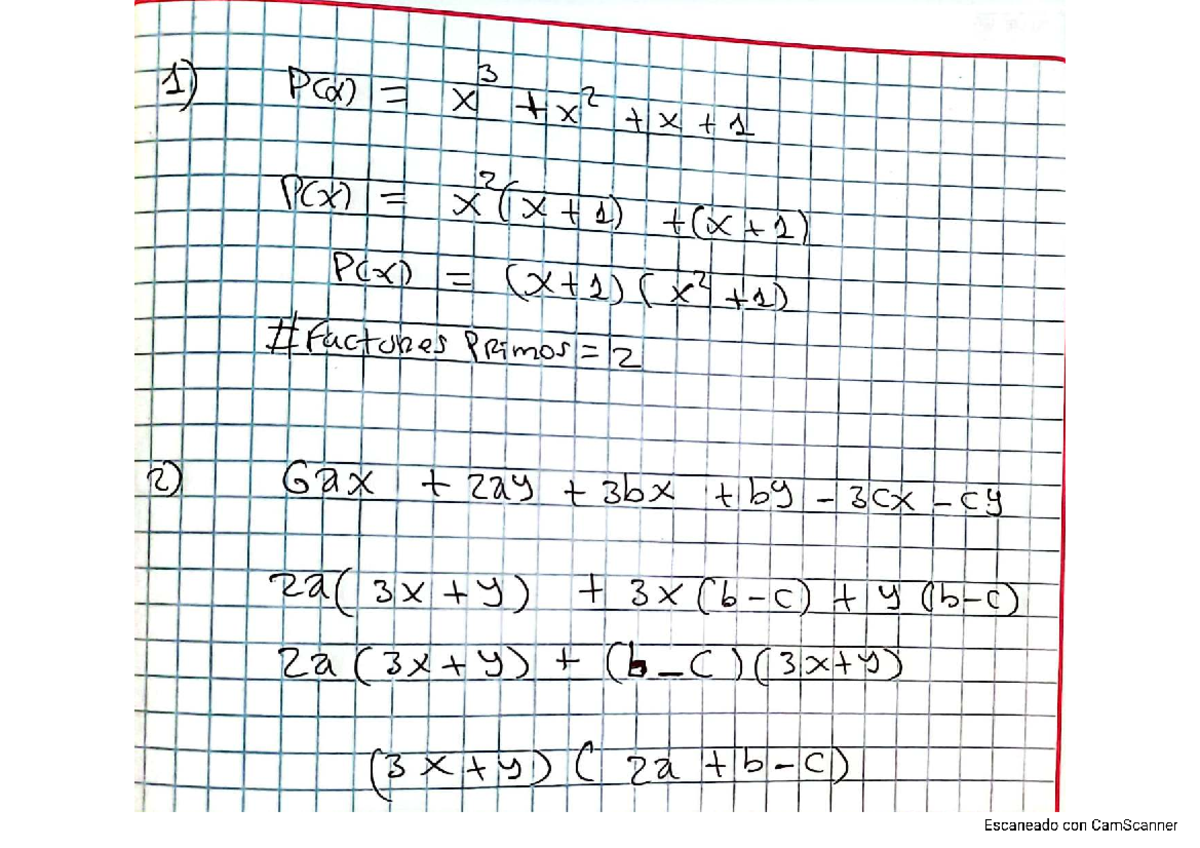 1) P(x) = x³ + x² + x + 1
P(x) = x²(x+1) + (x+1)
P(x) = (x+1)(x²+1)
# Factores Primos = 2
2) 6ax + 2ay + 3bx + by - 3cx - cy
2a(3x+y) + 3x(b-c) + y(b-c)
2a(3x+y) + (b-c)(3x+y)
(3x+y)(2a+b-c)
Escaneado con CamScanner